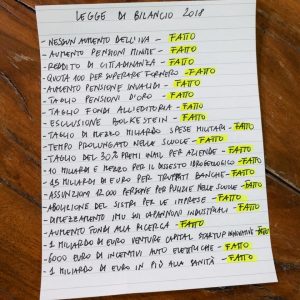 LEGGE DI BILANCIO 2018
- NESSUN AUMENTO DELL'IVA - FATTO
- AUMENTO PENSIONI MINIME - FATTO
- REDDITO DI CITTADINANZA - FATTO
- QUOTA 100 PER SUPERARE FORNERO - FATTO
- AUMENTO PENSIONI INVALIDI - FATTO
- TAGLIO PENSIONI D'ORO - FATTO
- TAGLIO FONDI ALL'EDITORIA - FATTO
- ESCLUSIONE BOLKESTEIN - FATTO
- TAGLIO DI MEZZO MILIARDO SPESE MILITARI - FATTO
- TEMPO PROLUNGATO NELLE SCUOLE - FATTO
- TAGLIO DEL 30% PREMI INAIL PER AZIENDE - FATTO
- 10 MILIARDI E MEZZO PER IL DISSESTO IDROGEOLOGICO - FATTO
- 1,5 MILIARDI DI EURO PER TRUFFATI BANCHE - FATTO
- ASSUNZIONI 12.000 PERSONE PER PULIZIE NELLE SCUOLE - FATTO
- ABOLIZIONE DEL SISTRI PER LE IMPRESE - FATTO
- DIMEZZAMENTO IMU SUI CAPANNONI INDUSTRIALI - FATTO
- AUMENTO FONDI ALLA RICERCA - FATTO
- 1 MILIARDO DI EURO VENTURE CAPITAL STARTUP INNOVATIVE - FATTO
- 6000 EURO DI INCENTIVI AUTO ELETTRICHE - FATTO
- 1 MILIARDO DI EURO IN PIÙ ALLA SANITÀ - FATTO